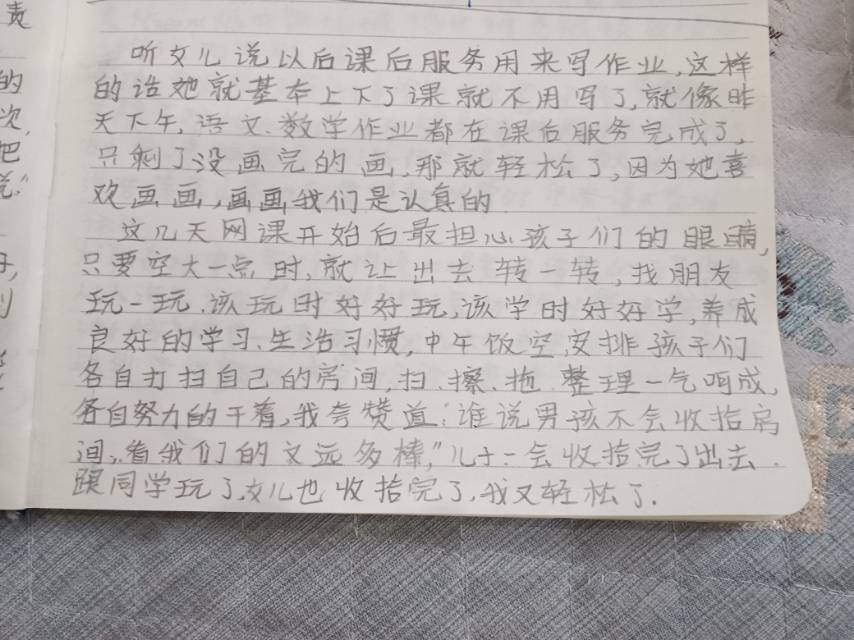 责
的
次,
把
听女儿说以后课后服务用来写作业,这样
的话她就基本上下了课就不用写了,就像昨
天下午,语文、数学作业都在课后服务完成了,
只剩了没画完的画,那就轻松了,因为她喜
欢画画,画画我们是认真的
这几天网课开始后最担心孩子们的眼睛,
只要空大一点时,就让出去转一转,找朋友
玩一玩.该玩时好好玩,该学时好好学,养成
良好的学习、生活习惯,中午饭空,安排孩子们
各自打扫自己的房间,扫、擦、拖、整理一气呵成,
各自努力的干着,我夸赞道:谁说男孩不会收拾房
间,看我们的文远多棒,"儿子一会收拾完了出去
跟同学玩了,女儿也收拾完了,我又轻松了.